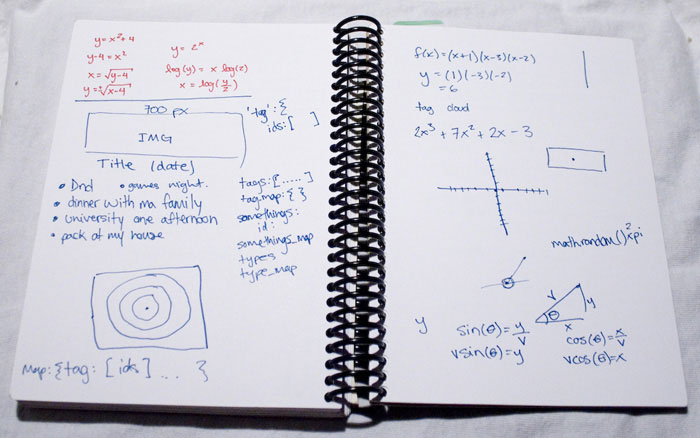 y = x² + 4
y - 4 = x²
x = √y-4
y = ±√x-4
y = 2ˣ
log(y) = x log(2)
x = log(y/2)
700 px
IMG
Title (date)
• Dnd • games night.
• dinner with ma family
• university one afternoon
• pack at my house
'tag': {
ids: [ ]
tags: [.....]
tagmap: { }
somethings:
id:
somethings_map
types
type_map
map: {tag: [ids] ... }
f(x) = (x+1)(x-3)(x-2)
y = (1)(-3)(-2)
= 6
tag cloud
2x³ + 7x² + 2x - 3
math.random() 2xpi
v
y
θ
x
y
sin(θ) = y/v
vsin(θ) = y
cos(θ) = x/v
vcos(θ) = x